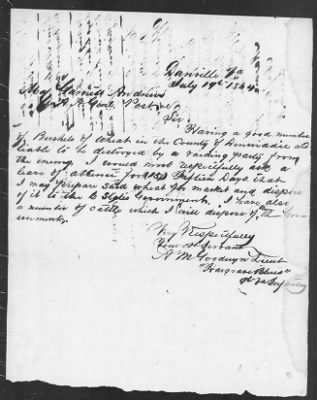 Danville Va
July 19th 1864
Maj Garnett Andrews
A. A. Genl. Post
Sir
Having a good number
of Bushels of Wheat in the County of Dinwiddie and
liable to be destroyed by a raiding party from
the enemy. I would most respectfully ask a
leave of absence for Fifteen Days, that
I may prepare said wheat for market and dispose
of it to the C States Government. I have also
a number of cattle which I will dispose of the Gov
ernment.
Very Respectfully
Your obt Servant
A M Goodwyn Lieut
"Hargrave Blues"